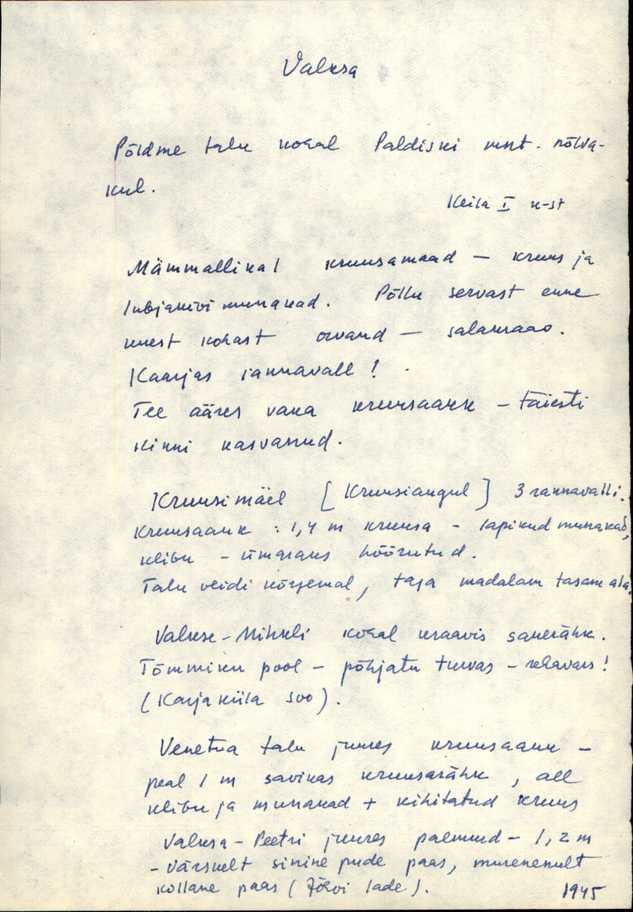 Valksa
Põldme talu kohal Paldiski mnt. nõlva-
kul.
Keila I n-st
Mämmallikal kruusamaad — kruus ja
lubjakivi munakad. Põllu servast enne
kohast orvand — salakraav.
Kaarjas rannavall!
Tee ääres vana kruusaauk — täiesti
kinni kasvanud.
Kruusimäel [Kruusiaugul] 3 rannavalli.
Kruusaauk: 1,4 m kruusa - lapikud munakad,
klibu - ümaraks hõõrutud.
Talu veidi kõrgemal, taga madalam tasane ala.
Valkse-Mihkli kohal kraavis savirähk.
Tõmmiku pool — põhjatu turvas —
(Karjaküla soo).
Venetua talu juures kruusaauk —
peal 1 m savikas kruusarähk, all
klibu ja munakad + kihitatud kruus
Valksa-Peetri juures paemurd - 1,2 m
- värskelt sinine pude paas, murenenult
kollane paas (Jõhvi lade).
1945